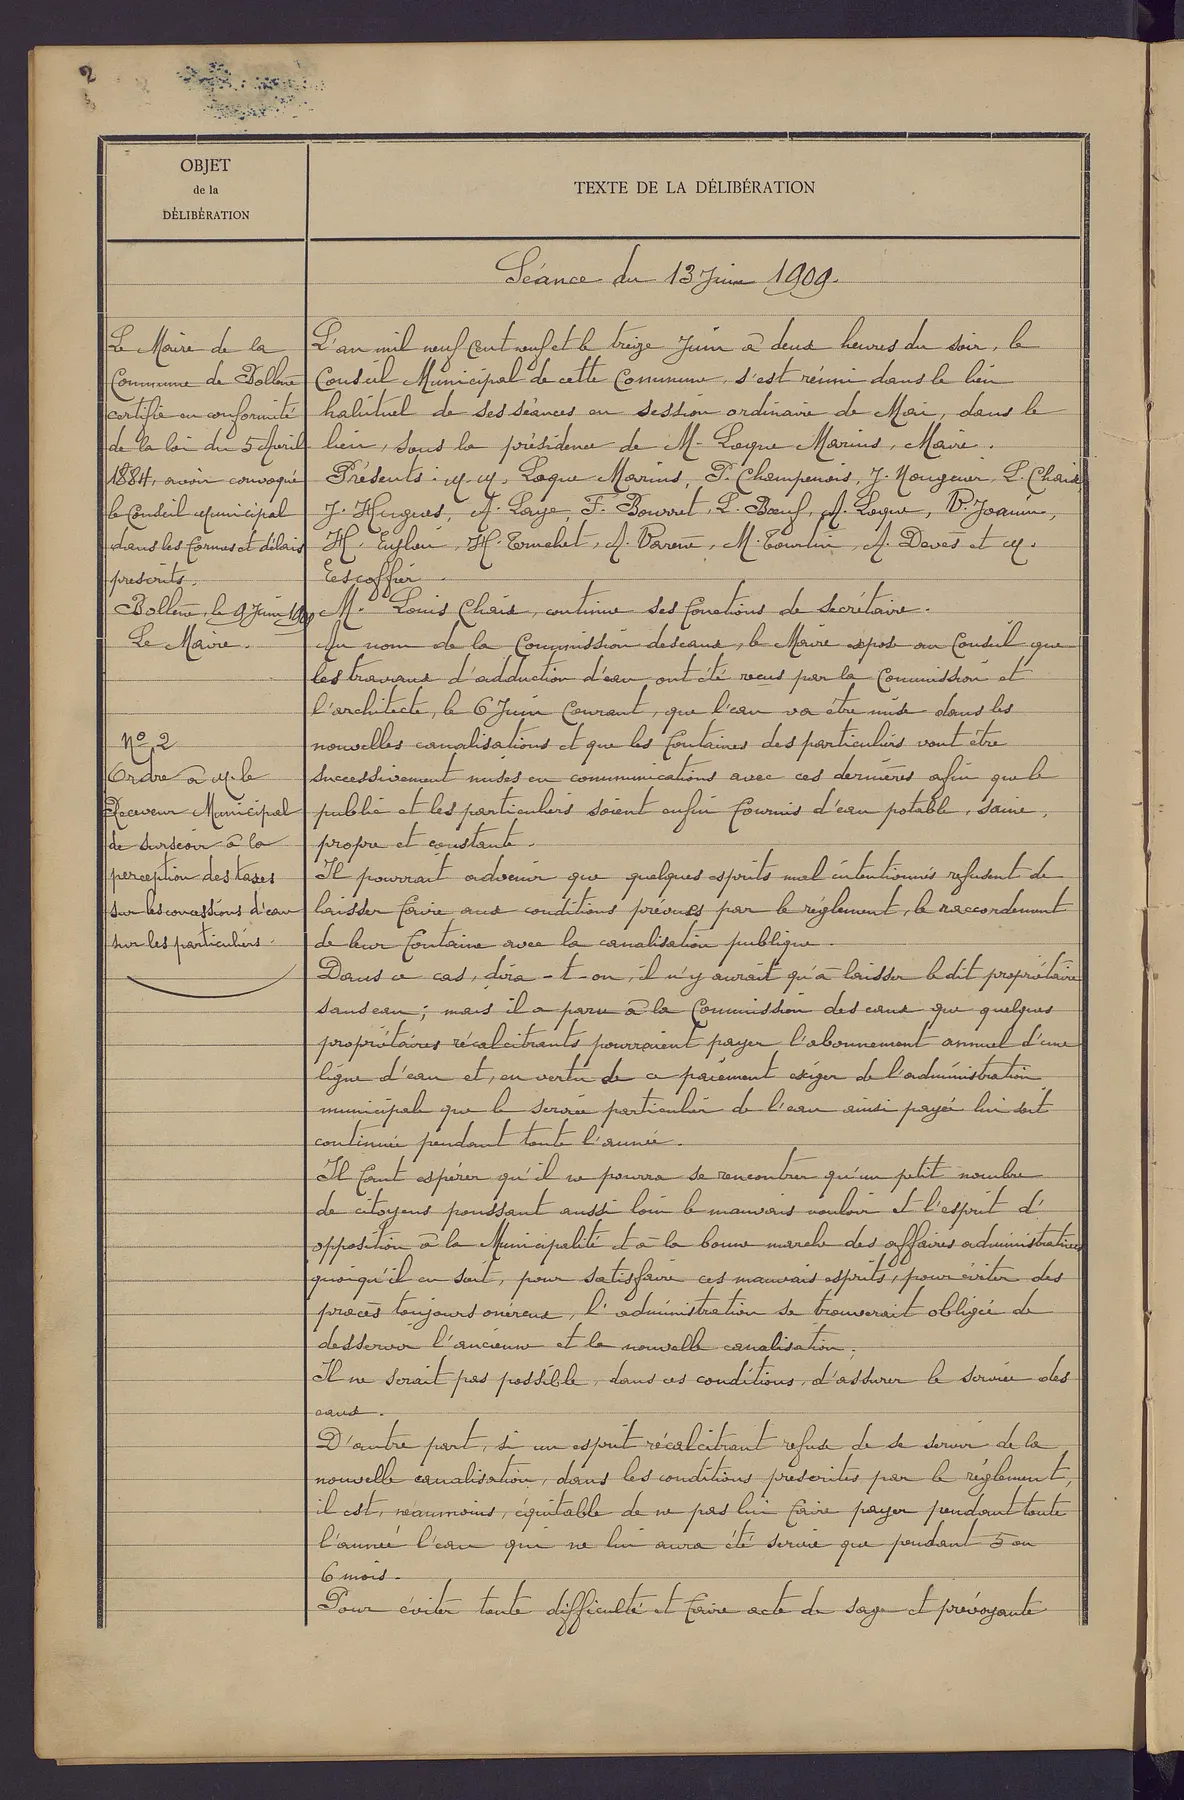 2
OBJET
de la
DÉLIBÉRATION
TEXTE DE LA DÉLIBÉRATION
Séance du 13 Juin 1909.
Le Maire de la
Commune de Bollène
certifie en conformité
de la loi du 5 Avril
1884, avoir convoqué
le Conseil Municipal
dans les formes et délais
prescrits.
Bollène, le 9 Juin 1909
Le Maire.
No 2
Ordre à M. le
Receveur Municipal
de surseoir à la
perception des taxes
sur les concessions d'eau
sur les particuliers.
L'an mil neuf cent neuf et le treize Juin à deux heures du soir, le
Conseil Municipal de cette Commune, s'est réuni dans le lieu
habituel de ses séances en session ordinaire de Mai, dans le
lieu, sous la présidence de M. Loque Marius, Maire.
Présents : M. M. Loque Marius, P. Champenois, J. Nougeier, L. Chaix,
J. Hugues, A. Loye, F. Bourret, L. Bœuf, A. Loque, V. Joannin,
H. H. Truchet, A. Varenne, M. Tourtin, A. Devès et M.
Escoffier.
M. Louis Chaix, continue ses fonctions de secrétaire.
Au nom de la Commission des eaux, le Maire expose au Conseil que
les travaux d'adduction d'eau ont été reçus par la Commission et
l'architecte, le 6 Juin Courant, que l'eau va être mise dans les
nouvelles canalisations et que les fontaines des particuliers vont être
successivement mises en communications avec ces dernières afin que le
public et les particuliers soient enfin fournis d'eau potable, saine,
propre et constante.
Il pourrait advenir que quelques esprits mal intentionnés refusent de
laisser faire aux conditions prévues par le règlement, le raccordement
de leur fontaine avec la canalisation publique.
Dans ce cas, dira-t-on, il n'y aurait qu'à laisser le dit propriétaire
sans eau ; mais il a paru à la Commission des eaux que quelques
propriétaires récalcitrants pourraient payer l'abonnement annuel d'une
ligne d'eau et, en vertu de ce paiement exiger de l'administration
municipale que le service particulier de l'eau ainsi payée lui soit
continuée pendant toute l'année.
Il faut espérer qu'il ne pourra se rencontrer qu'un petit nombre
de citoyens poussant aussi loin le mauvais vouloir et l'esprit d'
opposition à la Municipalité et à la bonne marche des affaires administratives
quoiqu'il en soit, pour satisfaire ces mauvais esprits, pour éviter des
procès toujours onéreux, l'administration se trouverait obligée de
desservir l'ancienne et la nouvelle canalisation.
Il ne serait pas possible, dans ces conditions, d'assurer le service des
eaux.
D'autre part, si un esprit récalcitrant refuse de se servir de la
nouvelle canalisation, dans les conditions prescrites par le règlement,
il est, néanmoins, équitable de ne pas lui faire payer pendant toute
l'année l'eau qui ne lui aura été servie que pendant 5 ou
6 mois.
Pour éviter toute difficulté et faire acte de sage et prévoyante